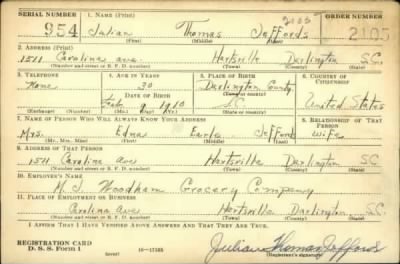 SERIAL NUMBER 1. NAME (Print) ORDER NUMBER
954 Julian Thomas Jeffords 2105
(First) (Middle) (Last)
2. ADDRESS (Print)
1511 Carolina ave. Hartsville Darlington S.C.
(Number and street or R. F. D. number) (Town) (County) (State)
3. TELEPHONE 4. AGE IN YEARS 5. PLACE OF BIRTH 6. COUNTRY OF CITIZENSHIP
None 30 Darlington County
DATE OF BIRTH (Town or county)
Feb. 9 1910 S.C. United States
(Exchange) (Number) (Mo.) (Day) (Yr.) (State or country)
7. NAME OF PERSON WHO WILL ALWAYS KNOW YOUR ADDRESS 8. RELATIONSHIP OF THAT PERSON
Mrs. Edna Earle Jeffords wife
(Mr., Mrs., Miss) (First) (Middle) (Last)
9. ADDRESS OF THAT PERSON
1511 Carolina ave Hartsville Darlington S.C.
(Number and street or R. F. D. number) (Town) (County) (State)
10. EMPLOYER'S NAME
Woodham Grocery Company
11. PLACE OF EMPLOYMENT OR BUSINESS
Carolina Ave Hartsville Darlington S.C.
(Number and street or R. F. D. number) (Town) (County) (State)
I AFFIRM THAT I HAVE VERIFIED ABOVE ANSWERS AND THAT THEY ARE TRUE.
REGISTRATION CARD
D. S. S. FORM 1 16—17105 Julian Thomas Jeffords
(over) (Registrant's signature)